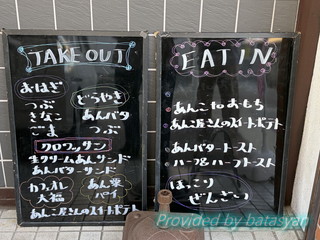 TAKE OUT
おはぎ
つぶ
きなこ
ごま
どらやき
あんバタ
つぶ
クロワッサン
生クリームあんサンド
あんバターサンド
カフェオレ
大福
あん栄
パイ
あんこ屋さんのスイートポテト
EAT IN
あんこdeおもち
あんこ屋さんのスイートポテト
あんバタートースト
ハーフ&ハーフトースト
ほっこり
ぜんざい
Provided by batasyan